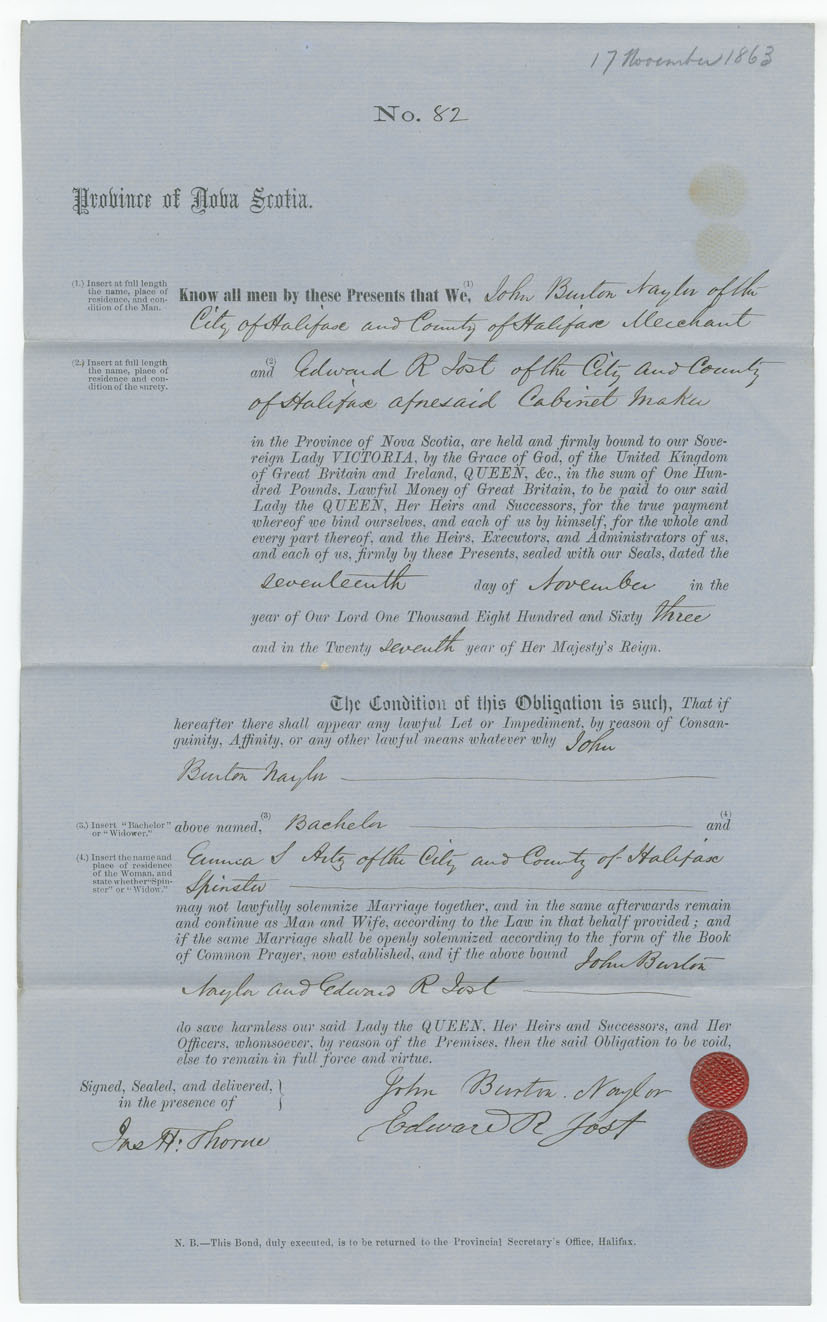 17 November 1863
No. 82
Province of Nova Scotia.
(1.) Insert at full length
the name, place of
residence, and con-
dition of the Man.
Know all men by these Presents that We,(1) John Burton Naylor of the
City of Halifax and County of Halifax Merchant
(2.) Insert at full length
the name, place of
residence and con-
dition of the surety.
(2)
and Edward R Jost of the City and County
of Halifax aforesaid Cabinet Maker
in the Province of Nova Scotia, are held and firmly bound to our Sove-
reign Lady VICTORIA, by the Grace of God, of the United Kingdom
of Great Britain and Ireland, QUEEN, &c., in the sum of One Hun-
dred Pounds, Lawful Money of Great Britain, to be paid to our said
Lady the QUEEN, Her Heirs and Successors, for the true payment
whereof we bind ourselves, and each of us by himself, for the whole and
every part thereof, and the Heirs, Executors, and Administrators of us,
and each of us, firmly by these Presents, sealed with our Seals, dated the
seventeenth day of November in the
year of Our Lord One Thousand Eight Hundred and Sixty three
and in the Twenty seventh year of Her Majesty's Reign.
The Condition of this Obligation is such, That if
hereafter there shall appear any lawful Let or Impediment, by reason of Consan-
guinity, Affinity, or any other lawful means whatever why John
Burton Naylor
(3.) Insert "Bachelor"
or "Widower."
above named,(3) Bachelor and (4)
(4.) Insert the name and
place of residence
of the Woman, and
state whether "Spin-
ster" or "Widow."
Emma S Artz of the City and County of Halifax
Spinster
may not lawfully solemnize Marriage together, and in the same afterwards remain
and continue as Man and Wife, according to the Law in that behalf provided; and
if the same Marriage shall be openly solemnized according to the form of the Book
of Common Prayer, now established, and if the above bound John Burton
Naylor and Edward R Jost
do save harmless our said Lady the QUEEN, Her Heirs and Successors, and Her
Officers, whomsoever, by reason of the Premises, then the said Obligation to be void,
else to remain in full force and virtue.
Signed, Sealed, and delivered,
in the presence of
John Burton. Naylor
Edward R Jost
Jas H. Thorne
N. B.—This Bond, duly executed, is to be returned to the Provincial Secretary's Office, Halifax.